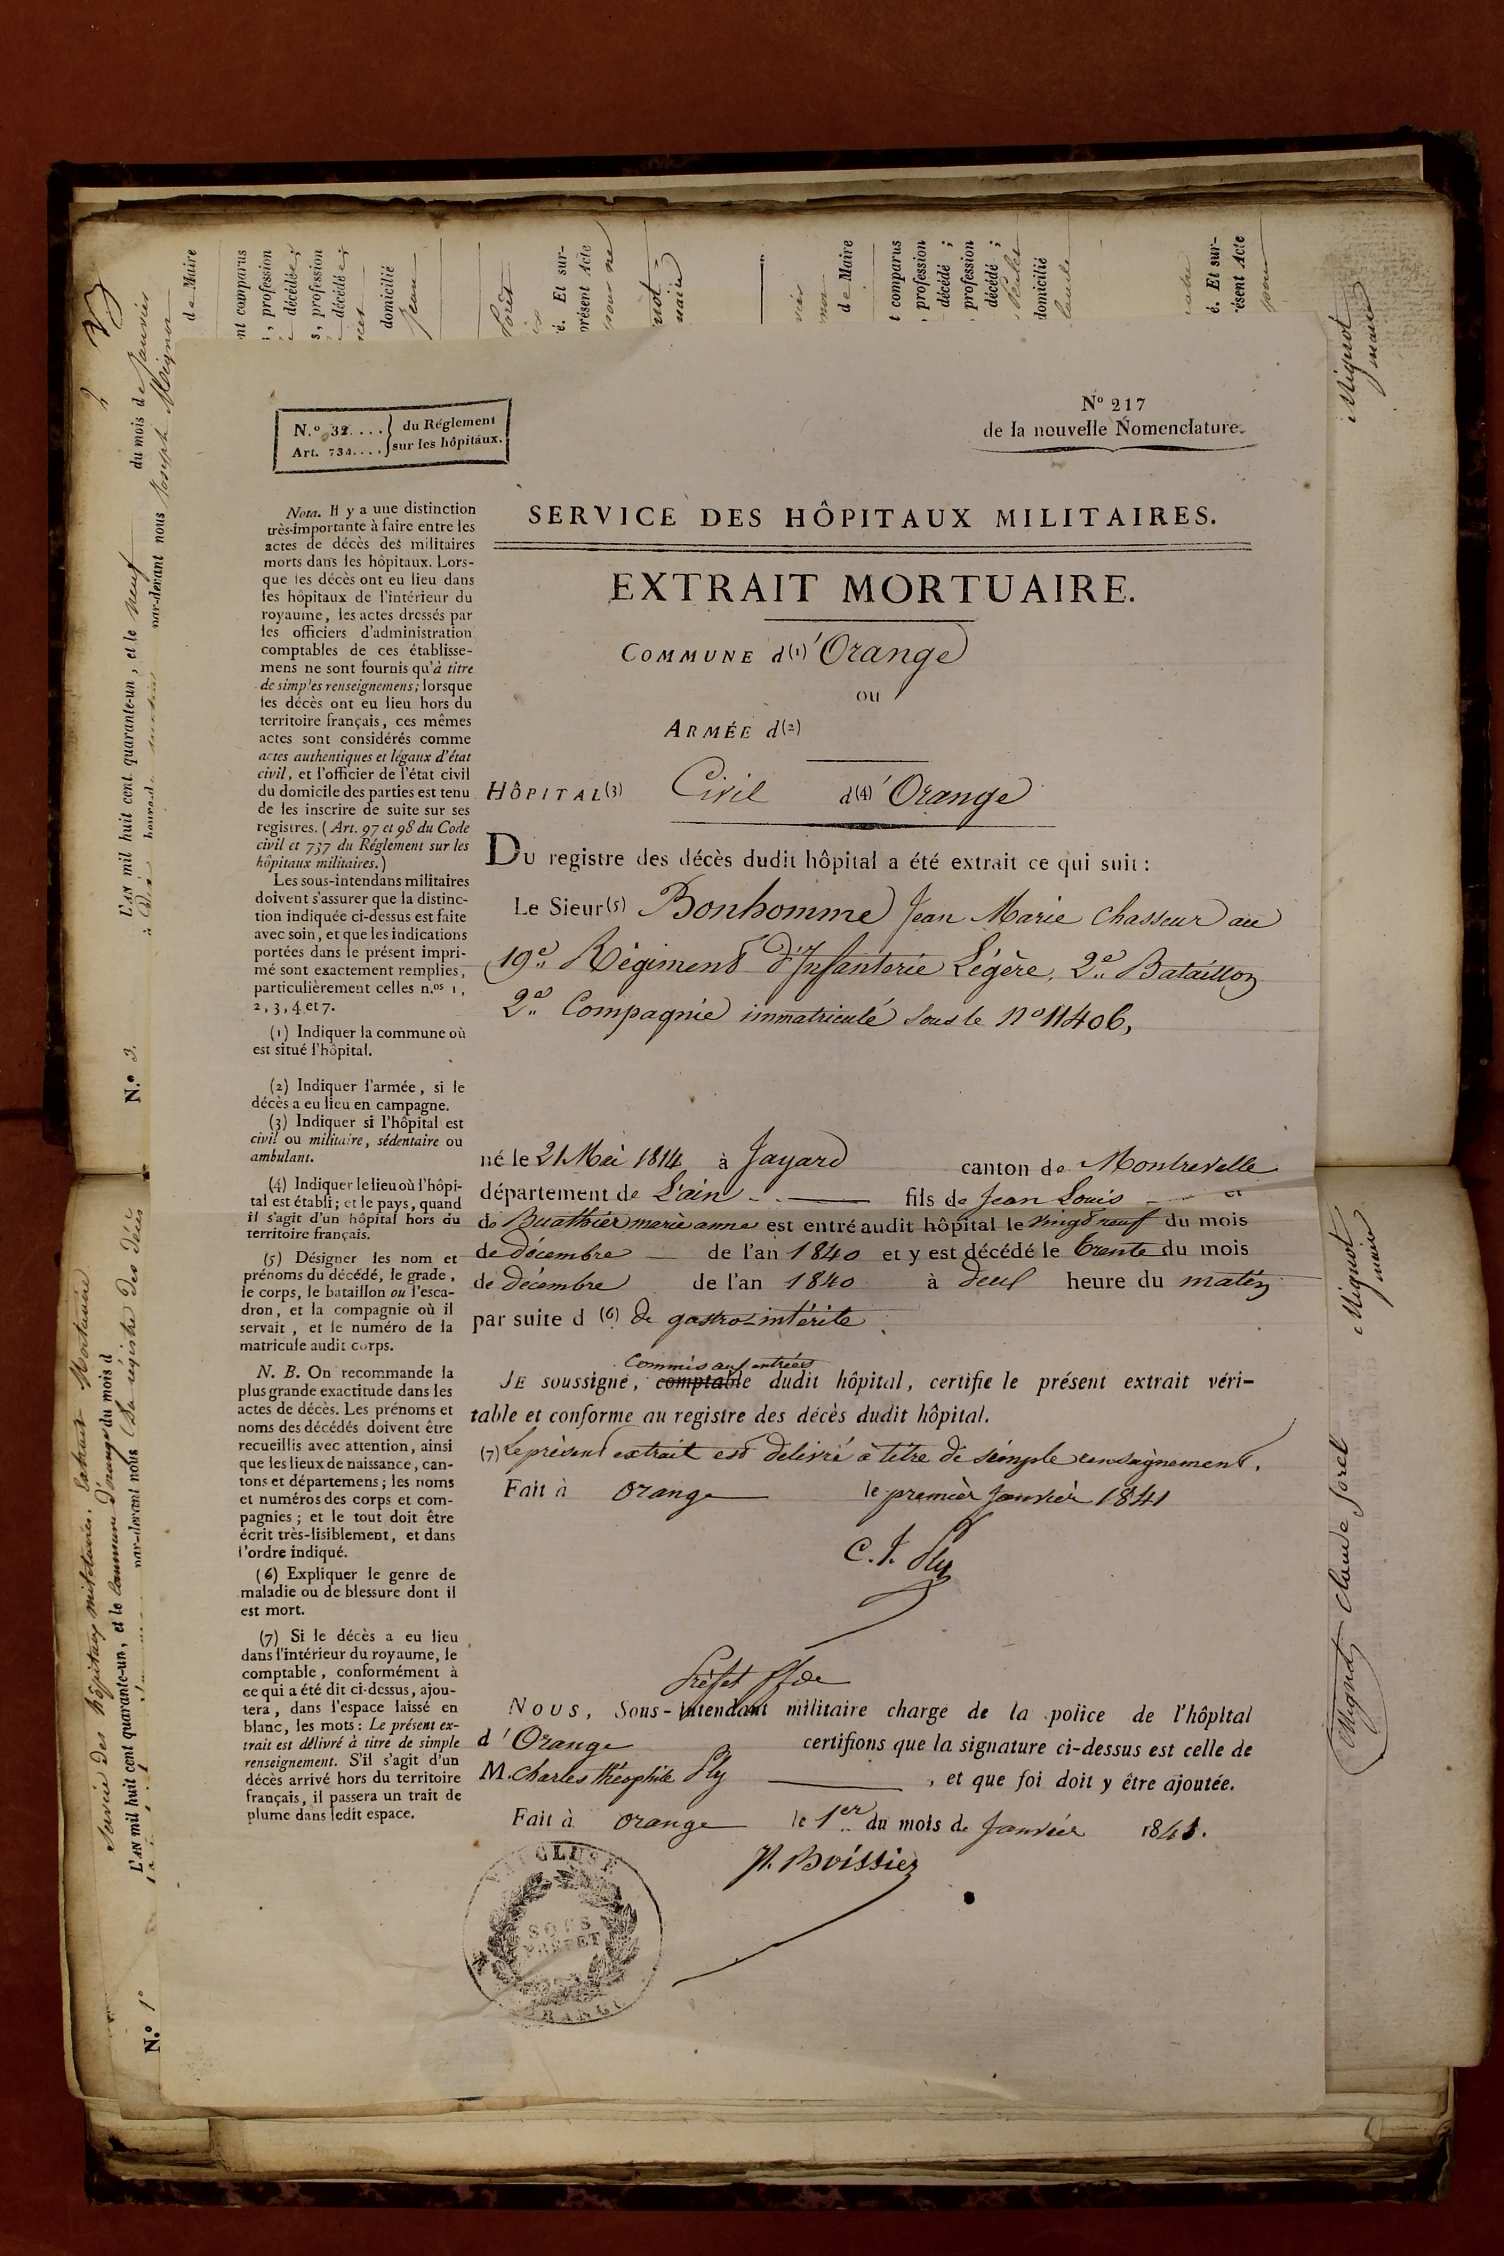 N.º 32.... du Réglement
Art. 734.... sur les hôpitaux.
Nº 217
de la nouvelle Nomenclature.
Nota. Il y a une distinction
très-importante à faire entre les
actes de décès des militaires
morts dans les hôpitaux. Lors-
que les décès ont eu lieu dans
les hôpitaux de l'intérieur du
royaume, les actes dressés par
les officiers d'administration
comptables de ces établisse-
mens ne sont fournis qu'à titre
de simples renseignemens; lorsque
les décès ont eu lieu hors du
territoire français, ces mêmes
actes sont considérés comme
actes authentiques et légaux d'état
civil, et l'officier de l'état civil
du domicile des parties est tenu
de les inscrire de suite sur ses
registres. (Art. 97 et 98 du Code
civil et 737 du Réglement sur les
hôpitaux militaires.)
Les sous-intendans militaires
doivent s'assurer que la distinc-
tion indiquée ci-dessus est faite
avec soin, et que les indications
portées dans le présent impri-
mé sont exactement remplies,
particulièrement celles n.os 1,
2, 3, 4 et 7.
(1) Indiquer la commune où
est situé l'hôpital.
(2) Indiquer l'armée, si le
décès a eu lieu en campagne.
(3) Indiquer si l'hôpital est
civil ou militaire, sédentaire ou
ambulant.
(4) Indiquer le lieu où l'hôpi-
tal est établi; et le pays, quand
il s'agit d'un hôpital hors du
territoire français.
(5) Désigner les nom et
prénoms du décédé, le grade,
le corps, le bataillon ou l'esca-
dron, et la compagnie où il
servait, et le numéro de la
matricule audit corps.
N. B. On recommande la
plus grande exactitude dans les
actes de décès. Les prénoms et
noms des décédés doivent être
recueillis avec attention, ainsi
que les lieux de naissance, can-
tons et départemens; les noms
et numéros des corps et com-
pagnies; et le tout doit être
écrit très-lisiblement, et dans
l'ordre indiqué.
(6) Expliquer le genre de
maladie ou de blessure dont il
est mort.
(7) Si le décès a eu lieu
dans l'intérieur du royaume, le
comptable, conformément à
ce qui a été dit ci-dessus, ajou-
tera, dans l'espace laissé en
blanc, les mots: Le présent ex-
trait est délivré à titre de simple
renseignement. S'il s'agit d'un
décès arrivé hors du territoire
français, il passera un trait de
plume dans ledit espace.
SERVICE DES HÔPITAUX MILITAIRES.
EXTRAIT MORTUAIRE.
COMMUNE d(1)'Orange
ou
ARMÉE d(2)
HÔPITAL(3) Civil d(4)'Orange
Du registre des décès dudit hôpital a été extrait ce qui suit :
Le Sieur(5) Bonhomme Jean Marie Chasseur au
19e Régiment d'Infanterie Légère, 2e Bataillon
2e Compagnie immatriculé sous le nº 11406,
né le 21 Mai 1814 à Jayard canton de Montrevelle
département de L'ain fils de Jean Louis et
de Buathier marie anne est entré audit hôpital le vingt neuf du mois
de décembre de l'an 1840 et y est décédé le trente du mois
de décembre de l'an 1840 à deux heure du matin
par suite d (6) de gastro-intérite
Commis aux entrées
JE soussigné, comptable dudit hôpital, certifie le présent extrait véri-
table et conforme au registre des décès dudit hôpital.
(7) Le présent extrait est délivré à titre de simple renseignement.
Fait à Orange le premier janvier 1841
C. T. Ply
Préfet ff de
NOUS, Sous-Intendant militaire chargé de la police de l'hôpital
d'Orange certifions que la signature ci-dessus est celle de
M. Charles théophile Ply, et que foi doit y être ajoutée.
Fait à Orange le 1er du mois de Janvier 1841.
Boissier
VAUCLUSE
SOUS
PRÉFET
ORANGE
de Maire
comparus
, profession
décédée;
, profession
décédée;
domicilié
Jean
é. Et sur-
présent Acte
de Maire
comparus
, profession
décédé ;
, profession
décédé ;
domicilié
é. Et sur-
ésent Acte
N.º 3.
L'AN mil huit cent quarante-un, et le neuf du mois de Janvier
par-devant nous Joseph Mignot
N.º 1º
Service des hôpitaux militaires. Extrait Mortuaire
L'AN mil huit cent quarante-un, et le du mois d
par-devant nous
Mignot
maire
Mignot
maire
Mignot Claude Sorel